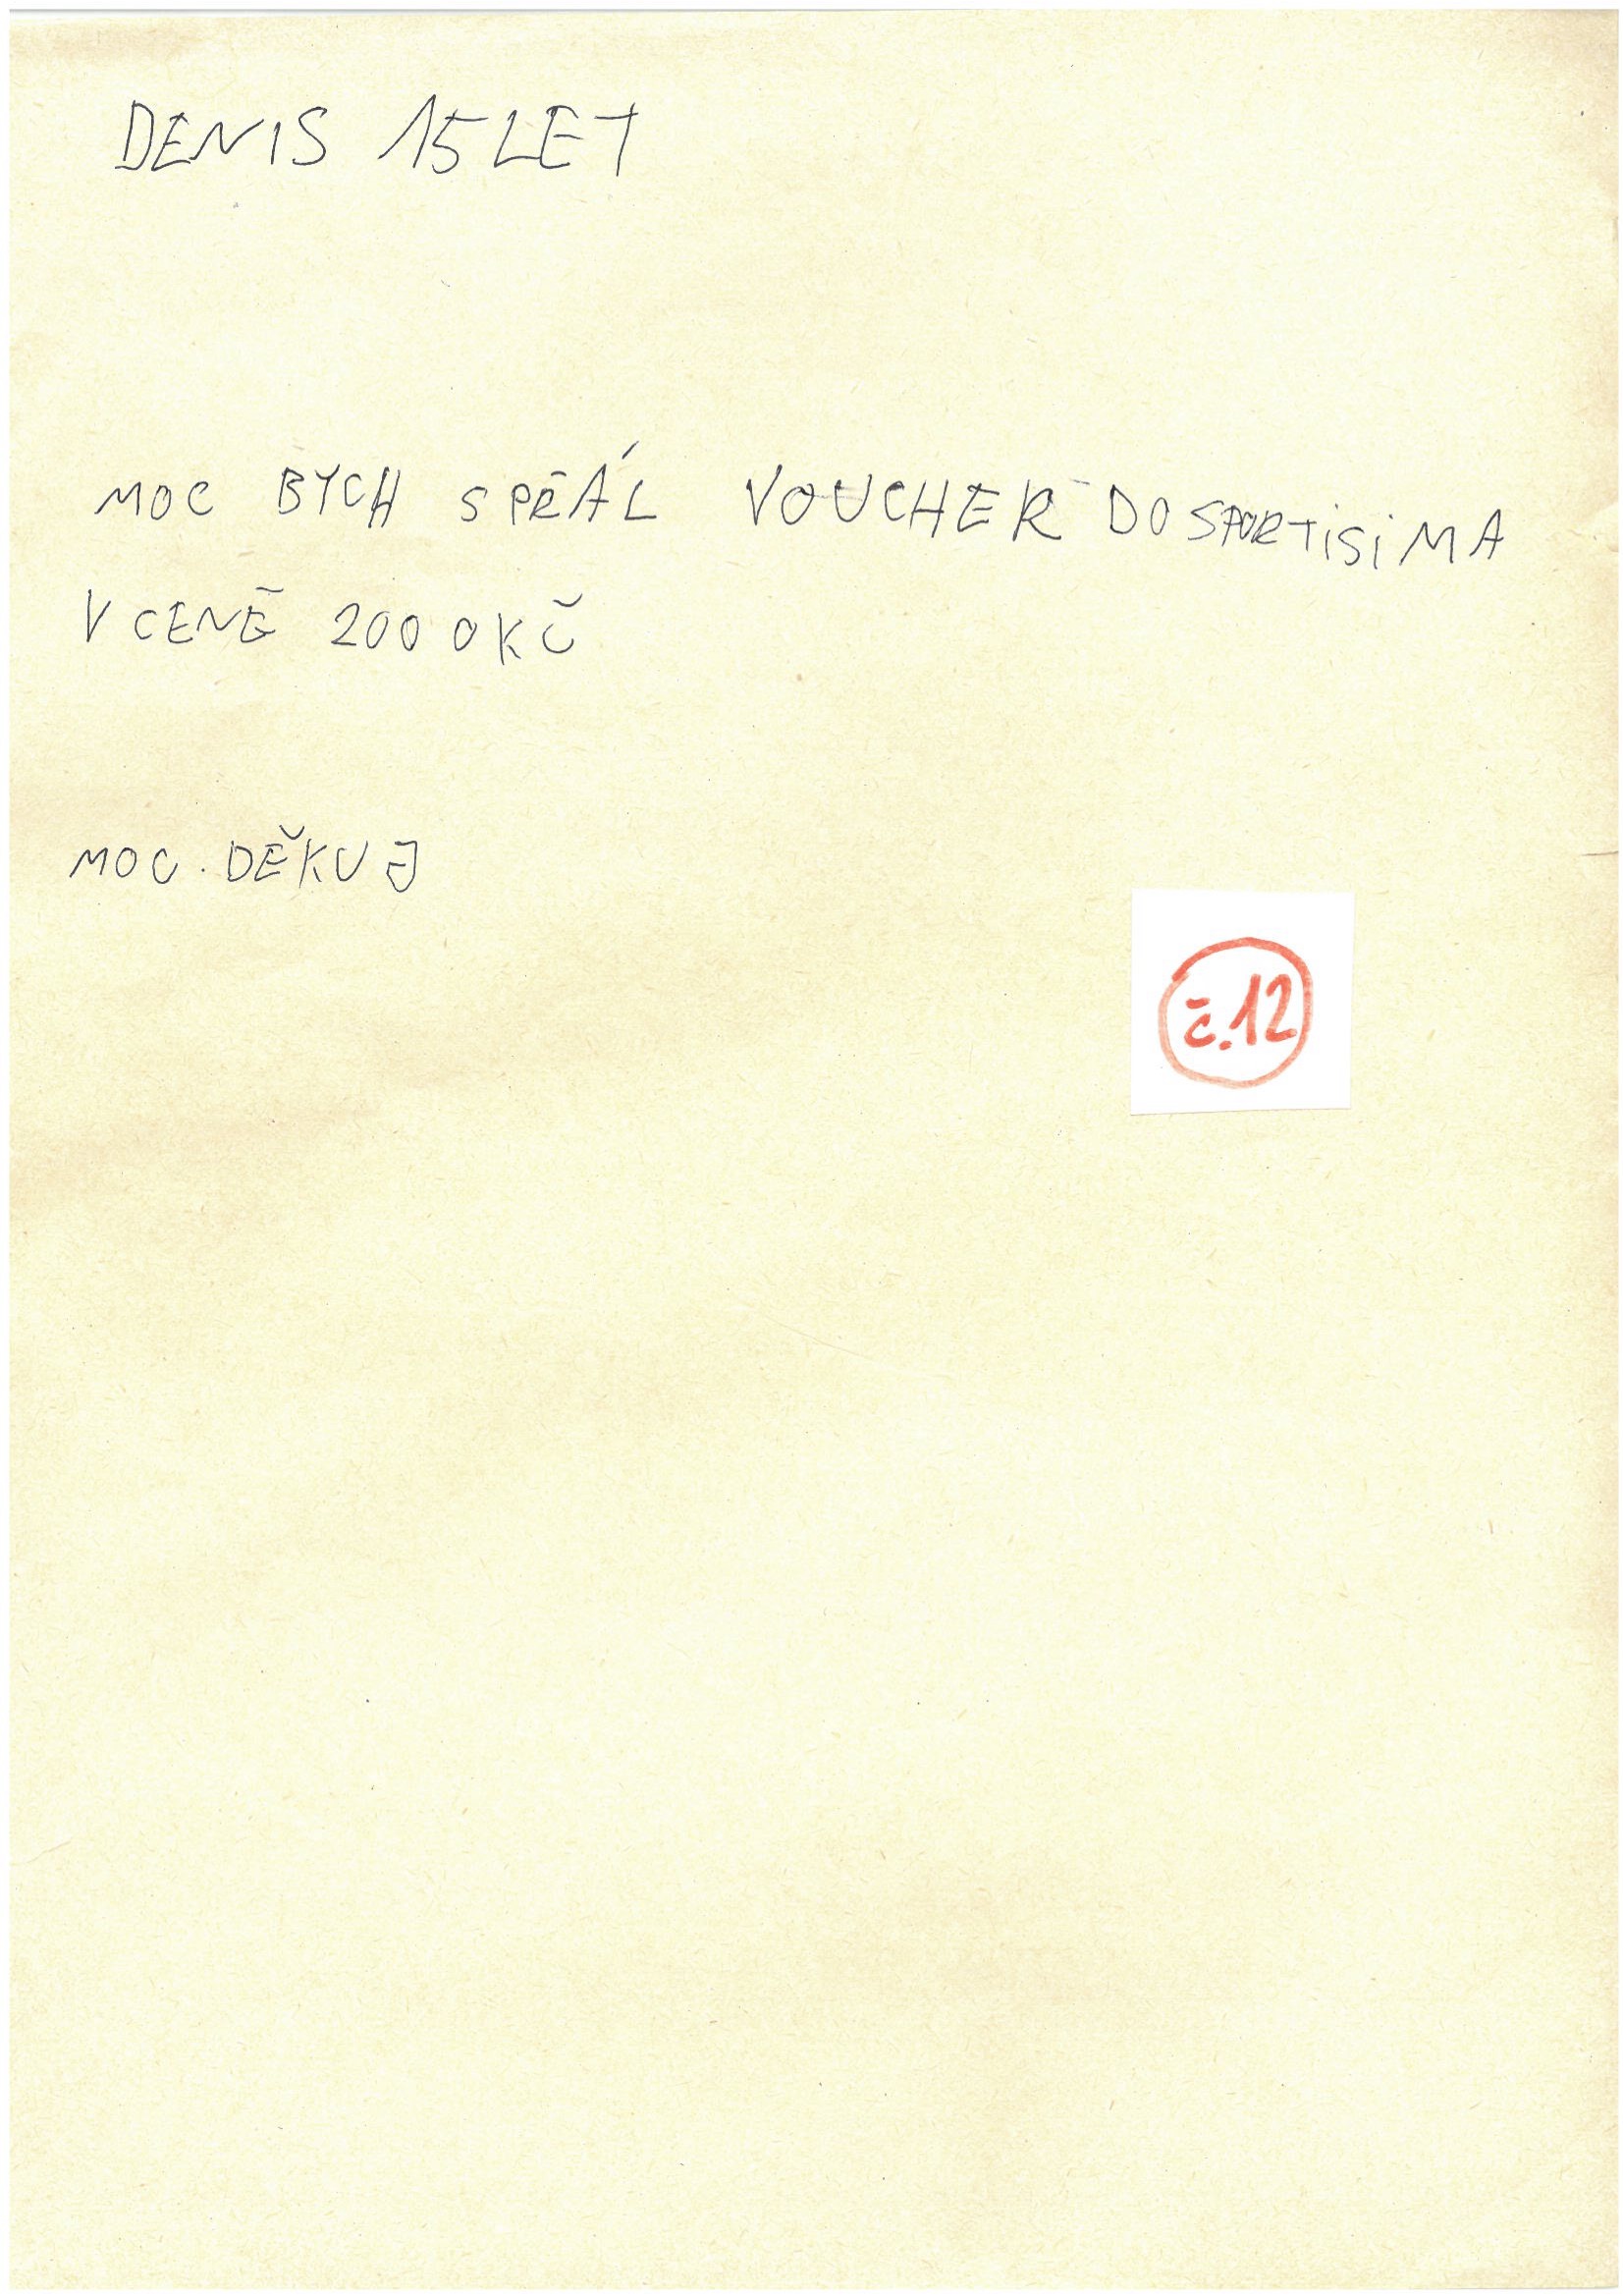 DENIS 15 LET
MOC BYCH SPŘÁL VOUCHER DO SPORTISIMA
V CENĚ 2000 KČ
MOC. DĚKUJ
č.12